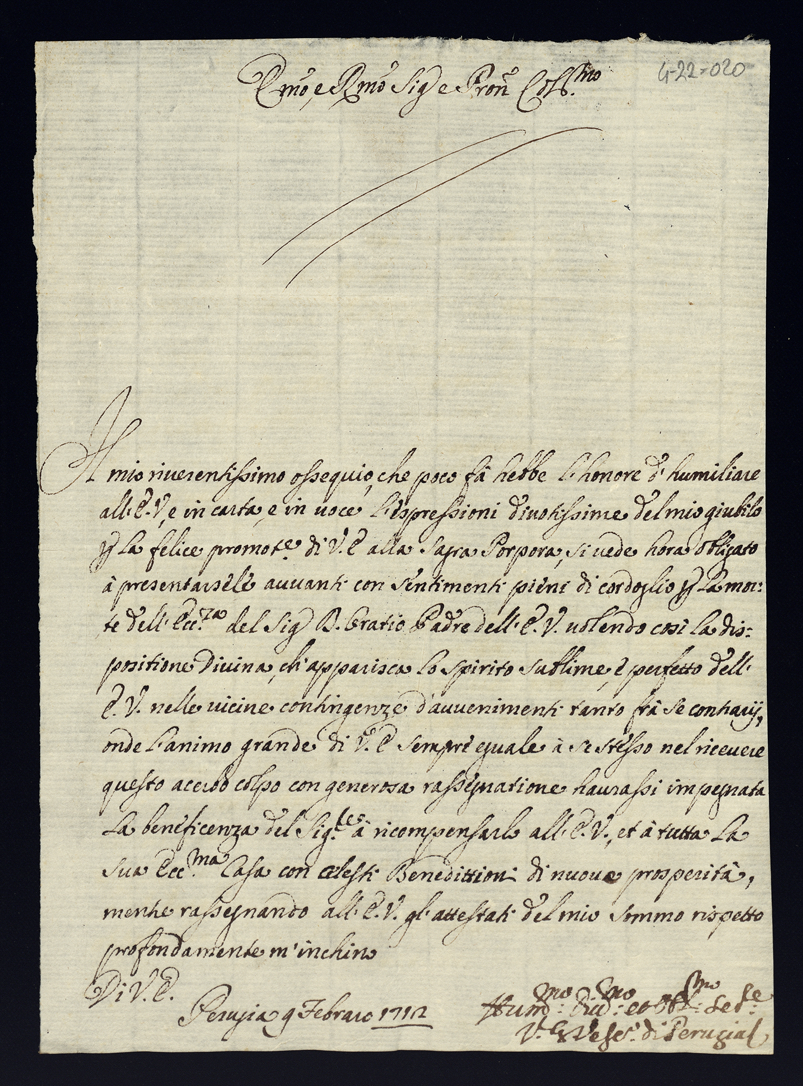 4-22-020
Emo, e Rmo Sig e Pron Colt.mo
Il mio riverentissimo ossequio, che poco fà hebbe l'honore d'humiliare
all'E.V, e in carta, e in voce l'espressioni divotissime del mio giubilo
p La felice promote di V.E alla Sagra Porpora, si vede hora obligato
à presentarsele avvanti con sentimenti pieni di cordoglio p La mor-
te dell'Ecc.za del Sig D. Oratio Padre dell'E.V. volendo così La dis-
positione Divina, ch'apparisca lo spirito sublime, e perfetto dell'
E.V. nelle vicine contingenze d'avvenimenti tanto frà se contrarij,
onde l'animo grande di V.E sempre eguale à se stesso nel ricevere
questo acerbo colpo con generosa rassegnatione haurassi impegnata
La beneficenza del Sig.re à ricompensarlo all'E.V., et à tutta La
sua Ecc.ma Casa con celesti Benedittioni di nuove prosperità,
mentre rassegnando all'E.V. gl'attestati del mio sommo rispetto
profondamente m'inchino
Di V.E.
Perugia 9 Febraro 1712
Hum.mo Di.mo et Obl.mo Se.re
V. Vesc. di Perugia